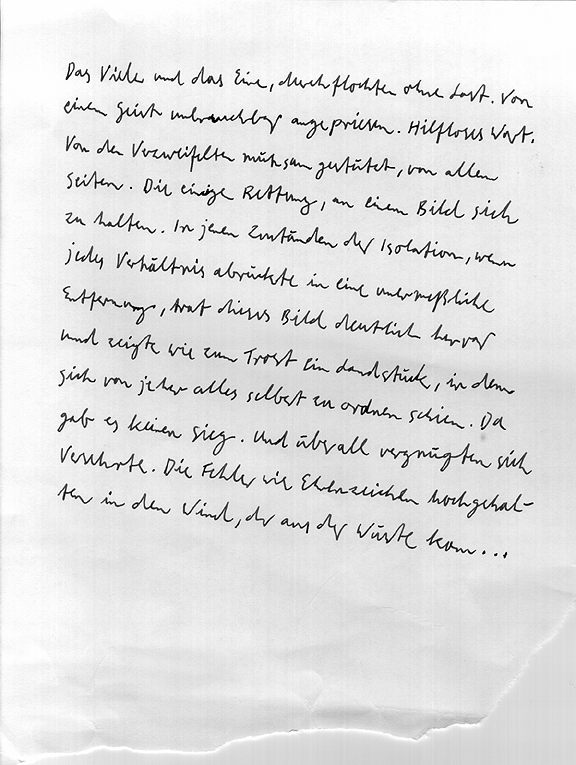 Das Viele und das Eine, durchflochten ohne Last. Von
einem Geist unbrauchbar angepriesen. Hilfloses Wort.
Von den Verzweifelten mühsam gestützt, von allen
Seiten. Die einzige Rettung, an einem Bild sich
zu halten. In jenen Zuständen der Isolation, wenn
jedes Verhältnis abrückte in eine unermeßliche
Entfernung, trat dieses Bild deutlich hervor
und zeigte wie zum Trost ein Landstück, in dem
sich von jeher alles selbst zu ordnen schien. Da
gab es keinen Sieg. Und überall vergnügten sich
Versehrte. Die Fehler wie Ehrenzeichen hochgehal-
ten in den Wind, der aus der Wüste kam...